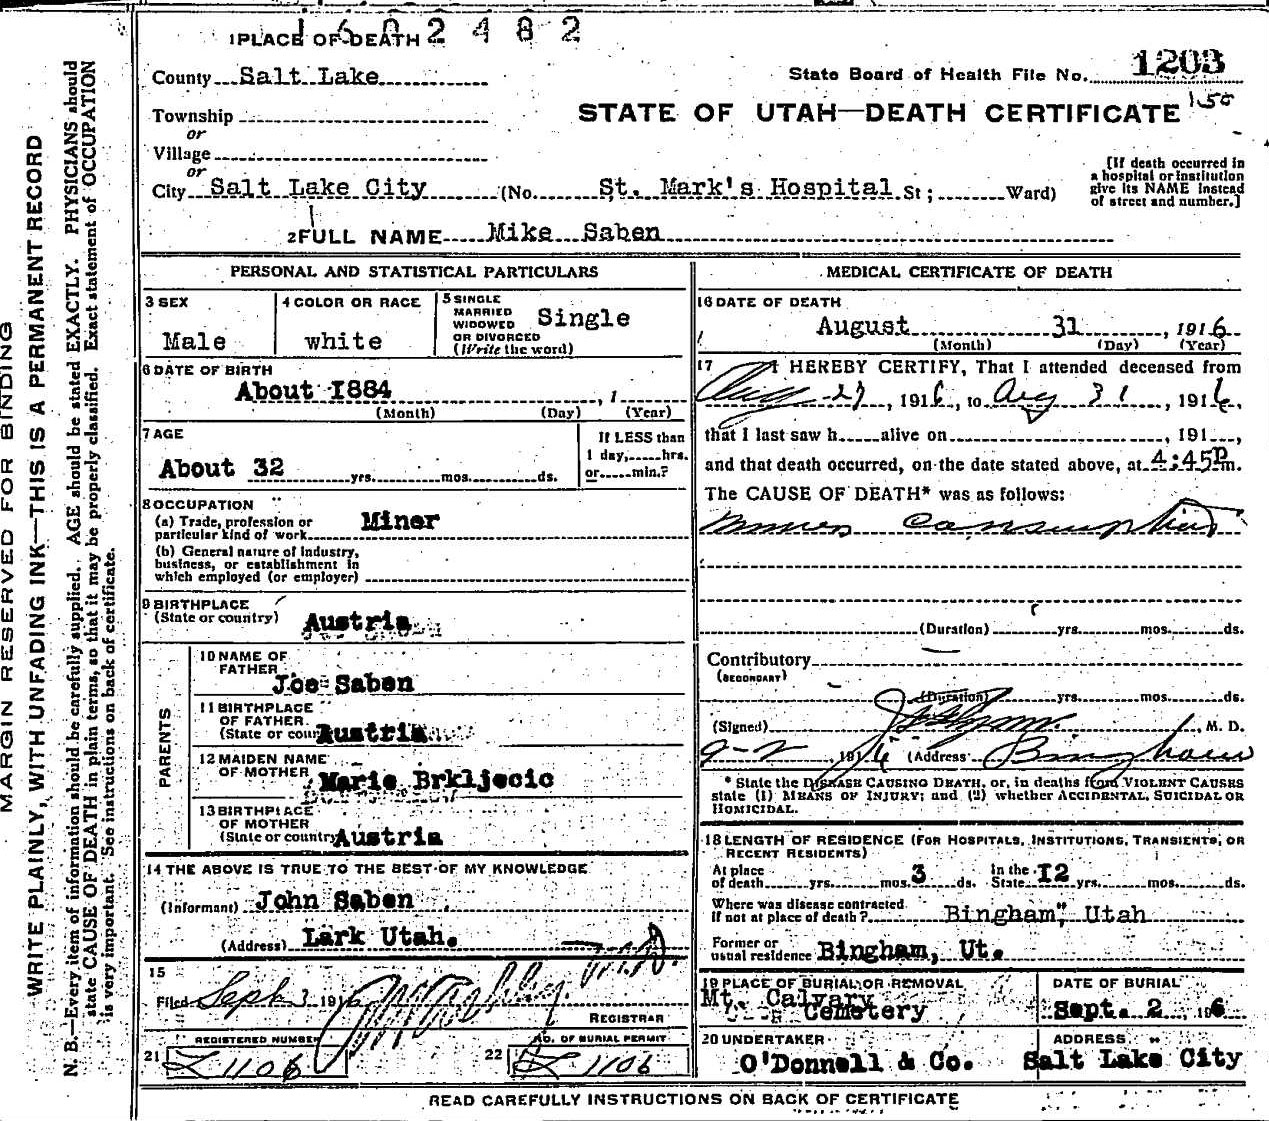 1602482
1 PLACE OF DEATH
County Salt Lake
State Board of Health File No. 1203
Township
STATE OF UTAH—DEATH CERTIFICATE 150
or
Village
or
City Salt Lake City (No. St. Mark's Hospital St; Ward)
[If death occurred in
a hospital or institution
give its NAME instead
of street and number.]
2 FULL NAME Mike Saben
PERSONAL AND STATISTICAL PARTICULARS
3 SEX
Male
4 COLOR OR RACE
white
5 SINGLE
MARRIED
WIDOWED
OR DIVORCED
(Write the word)
Single
6 DATE OF BIRTH
About 1884 , 1
(Month) (Day) (Year)
7 AGE
About 32 yrs. mos. ds.
If LESS than
1 day, hrs.
or min.?
8 OCCUPATION
(a) Trade, profession or
particular kind of work Miner
(b) General nature of industry,
business, or establishment in
which employed (or employer)
9 BIRTHPLACE
(State or country) Austria
PARENTS
10 NAME OF
FATHER
Joe Saben
11 BIRTHPLACE
OF FATHER
(State or coun Austria
12 MAIDEN NAME
OF MOTHER
Marie Brkljecic
13 BIRTHPLACE
OF MOTHER
(State or country Austria
14 THE ABOVE IS TRUE TO THE BEST OF MY KNOWLEDGE
(Informant) John Saben
(Address) Lark Utah.
15
Filed Sept 3 1916
REGISTRAR
REGISTERED NUMBER
21 1106
NO. OF BURIAL PERMIT
22 1106
MEDICAL CERTIFICATE OF DEATH
16 DATE OF DEATH
August 31 , 1916
(Month) (Day) (Year)
17 I HEREBY CERTIFY, That I attended deceased from
Aug 27, 1916, to Aug 31, 1916,
that I last saw h alive on , 191 ,
and that death occurred, on the date stated above, at 4:45 P m.
The CAUSE OF DEATH* was as follows:
Miners Consumption
(Duration) yrs. mos. ds.
Contributory
(SECONDARY)
(Duration) yrs. mos. ds.
(Signed) , M. D.
9-2, 1916 (Address Bingham
* State the DISEASE CAUSING DEATH, or, in deaths from VIOLENT CAUSES
state (1) MEANS OF INJURY; and (2) whether ACCIDENTAL, SUICIDAL OR
HOMICIDAL.
18 LENGTH OF RESIDENCE (FOR HOSPITALS, INSTITUTIONS, TRANSIENTS, OR
RECENT RESIDENTS)
At place
of death yrs. mos. 3 ds.
In the
State 12 yrs. mos. ds.
Where was disease contracted
if not at place of death? Bingham, Utah
Former or
usual residence Bingham, Ut.
19 PLACE OF BURIAL OR REMOVAL
Mt. Calvary
Cemetery
DATE OF BURIAL
Sept. 2, 196
20 UNDERTAKER
O'Donnell & Co.
ADDRESS
Salt Lake City
READ CAREFULLY INSTRUCTIONS ON BACK OF CERTIFICATE
MARGIN RESERVED FOR BINDING
WRITE PLAINLY, WITH UNFADING INK—THIS IS A PERMANENT RECORD
N. B.—Every item of information should be carefully supplied. AGE should be stated EXACTLY. PHYSICIANS should
state CAUSE OF DEATH in plain terms, so that it may be properly classified. Exact statement of OCCUPATION
is very important. See instructions on back of certificate.